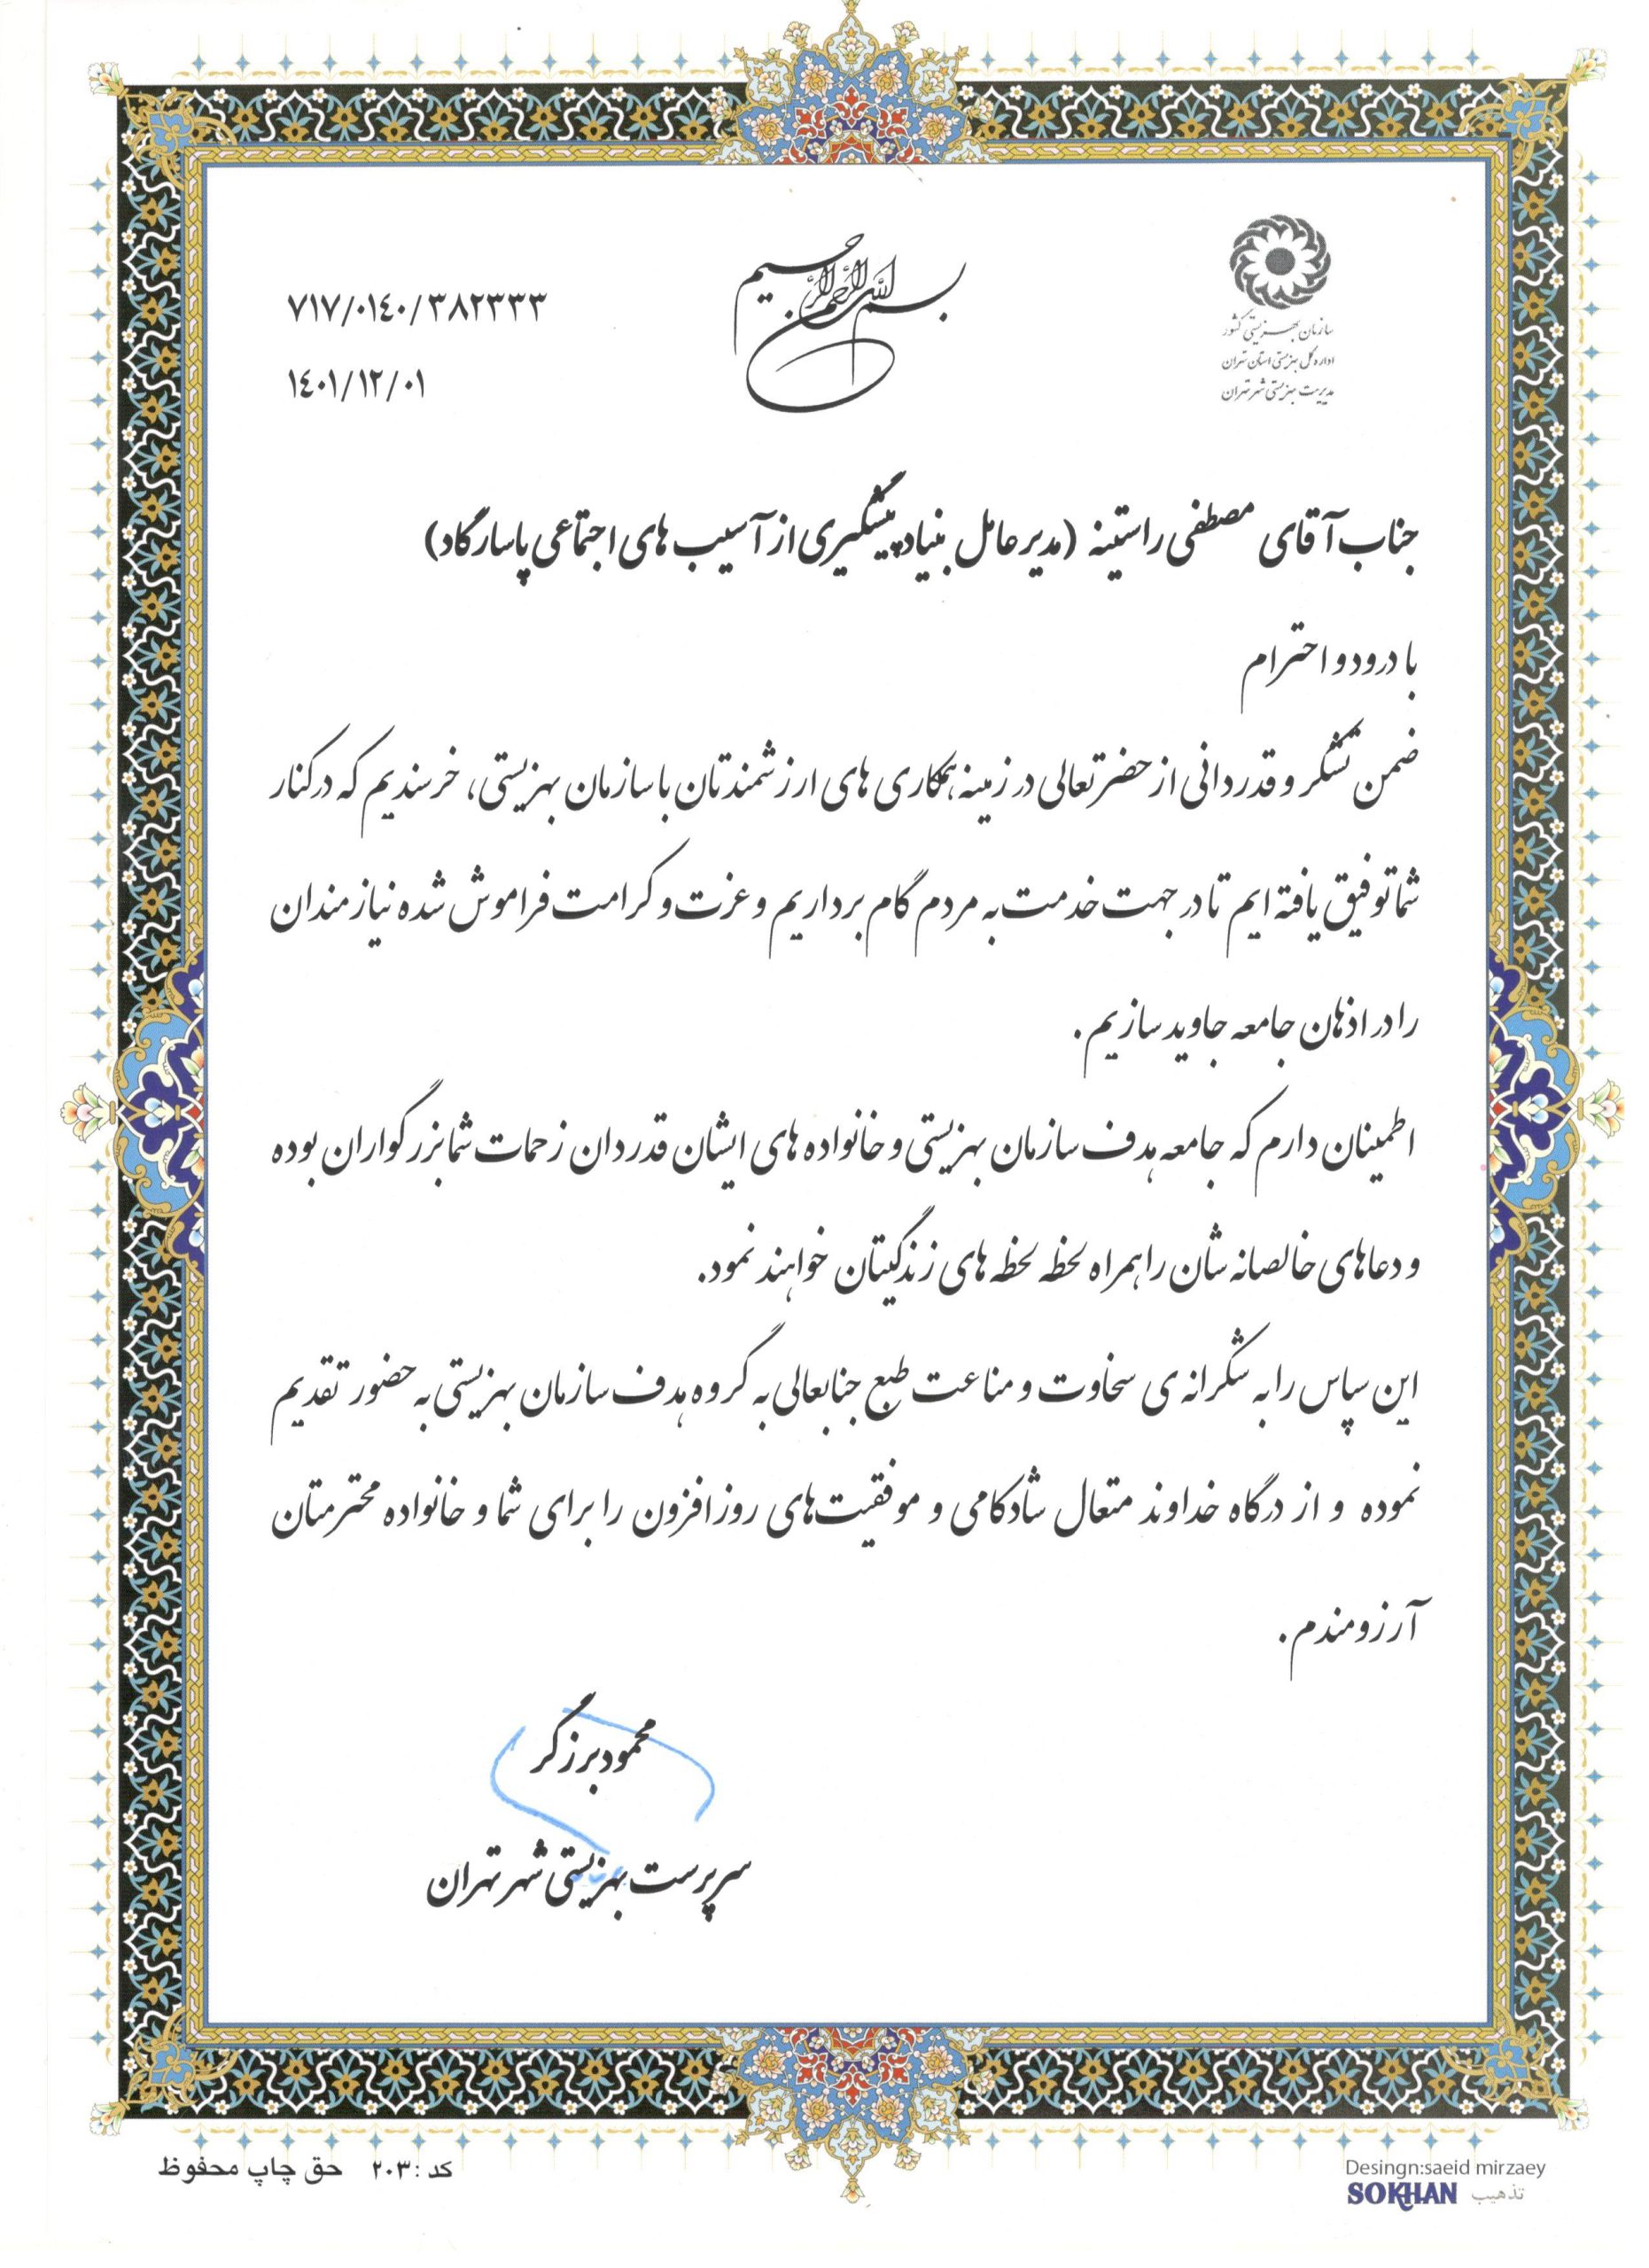 بسم الله الرحمن الرحیم
سازمان بهزیستی کشور
اداره کل بهزیستی استان تهران
مدیریت بهزیستی شهر تهران
۷۱۷/۰۱۴۰/۳۸۲۳۳۳
۱۴۰۱/۱۲/۰۱
جناب آقای مصطفی راستینه (مدیر عامل بنیاد پیشگیری از آسیب های اجتماعی پاسارگاد)
با درود و احترام
ضمن تشکر و قدردانی از حضرتعالی در زمینه همکاری های ارزشمندتان با سازمان بهزیستی، خرسندیم که در کنار
شما توفیق یافته ایم تا در جهت خدمت به مردم گام برداریم و عزت و کرامت فراموش شده نیازمندان
را در اذهان جامعه جاوید سازیم.
اطمینان دارم که جامعه هدف سازمان بهزیستی و خانواده های ایشان قدردان زحمات شما بزرگواران بوده
و دعاهای خالصانه شان را همراه لحظه لحظه های زندگیتان خواهند نمود.
این سپاس را به شکرانه ی سخاوت و مناعت طبع جنابعالی به گروه هدف سازمان بهزیستی به حضور تقدیم
نموده و از درگاه خداوند متعال شادکامی و موفقیت های روزافزون را برای شما و خانواده محترمتان
آرزومندم.
محمود برزگر
سرپرست بهزیستی شهر تهران
کد : ۲۰۳ حق چاپ محفوظ
Desingn:saeid mirzaey
SOKHAN تذهیب